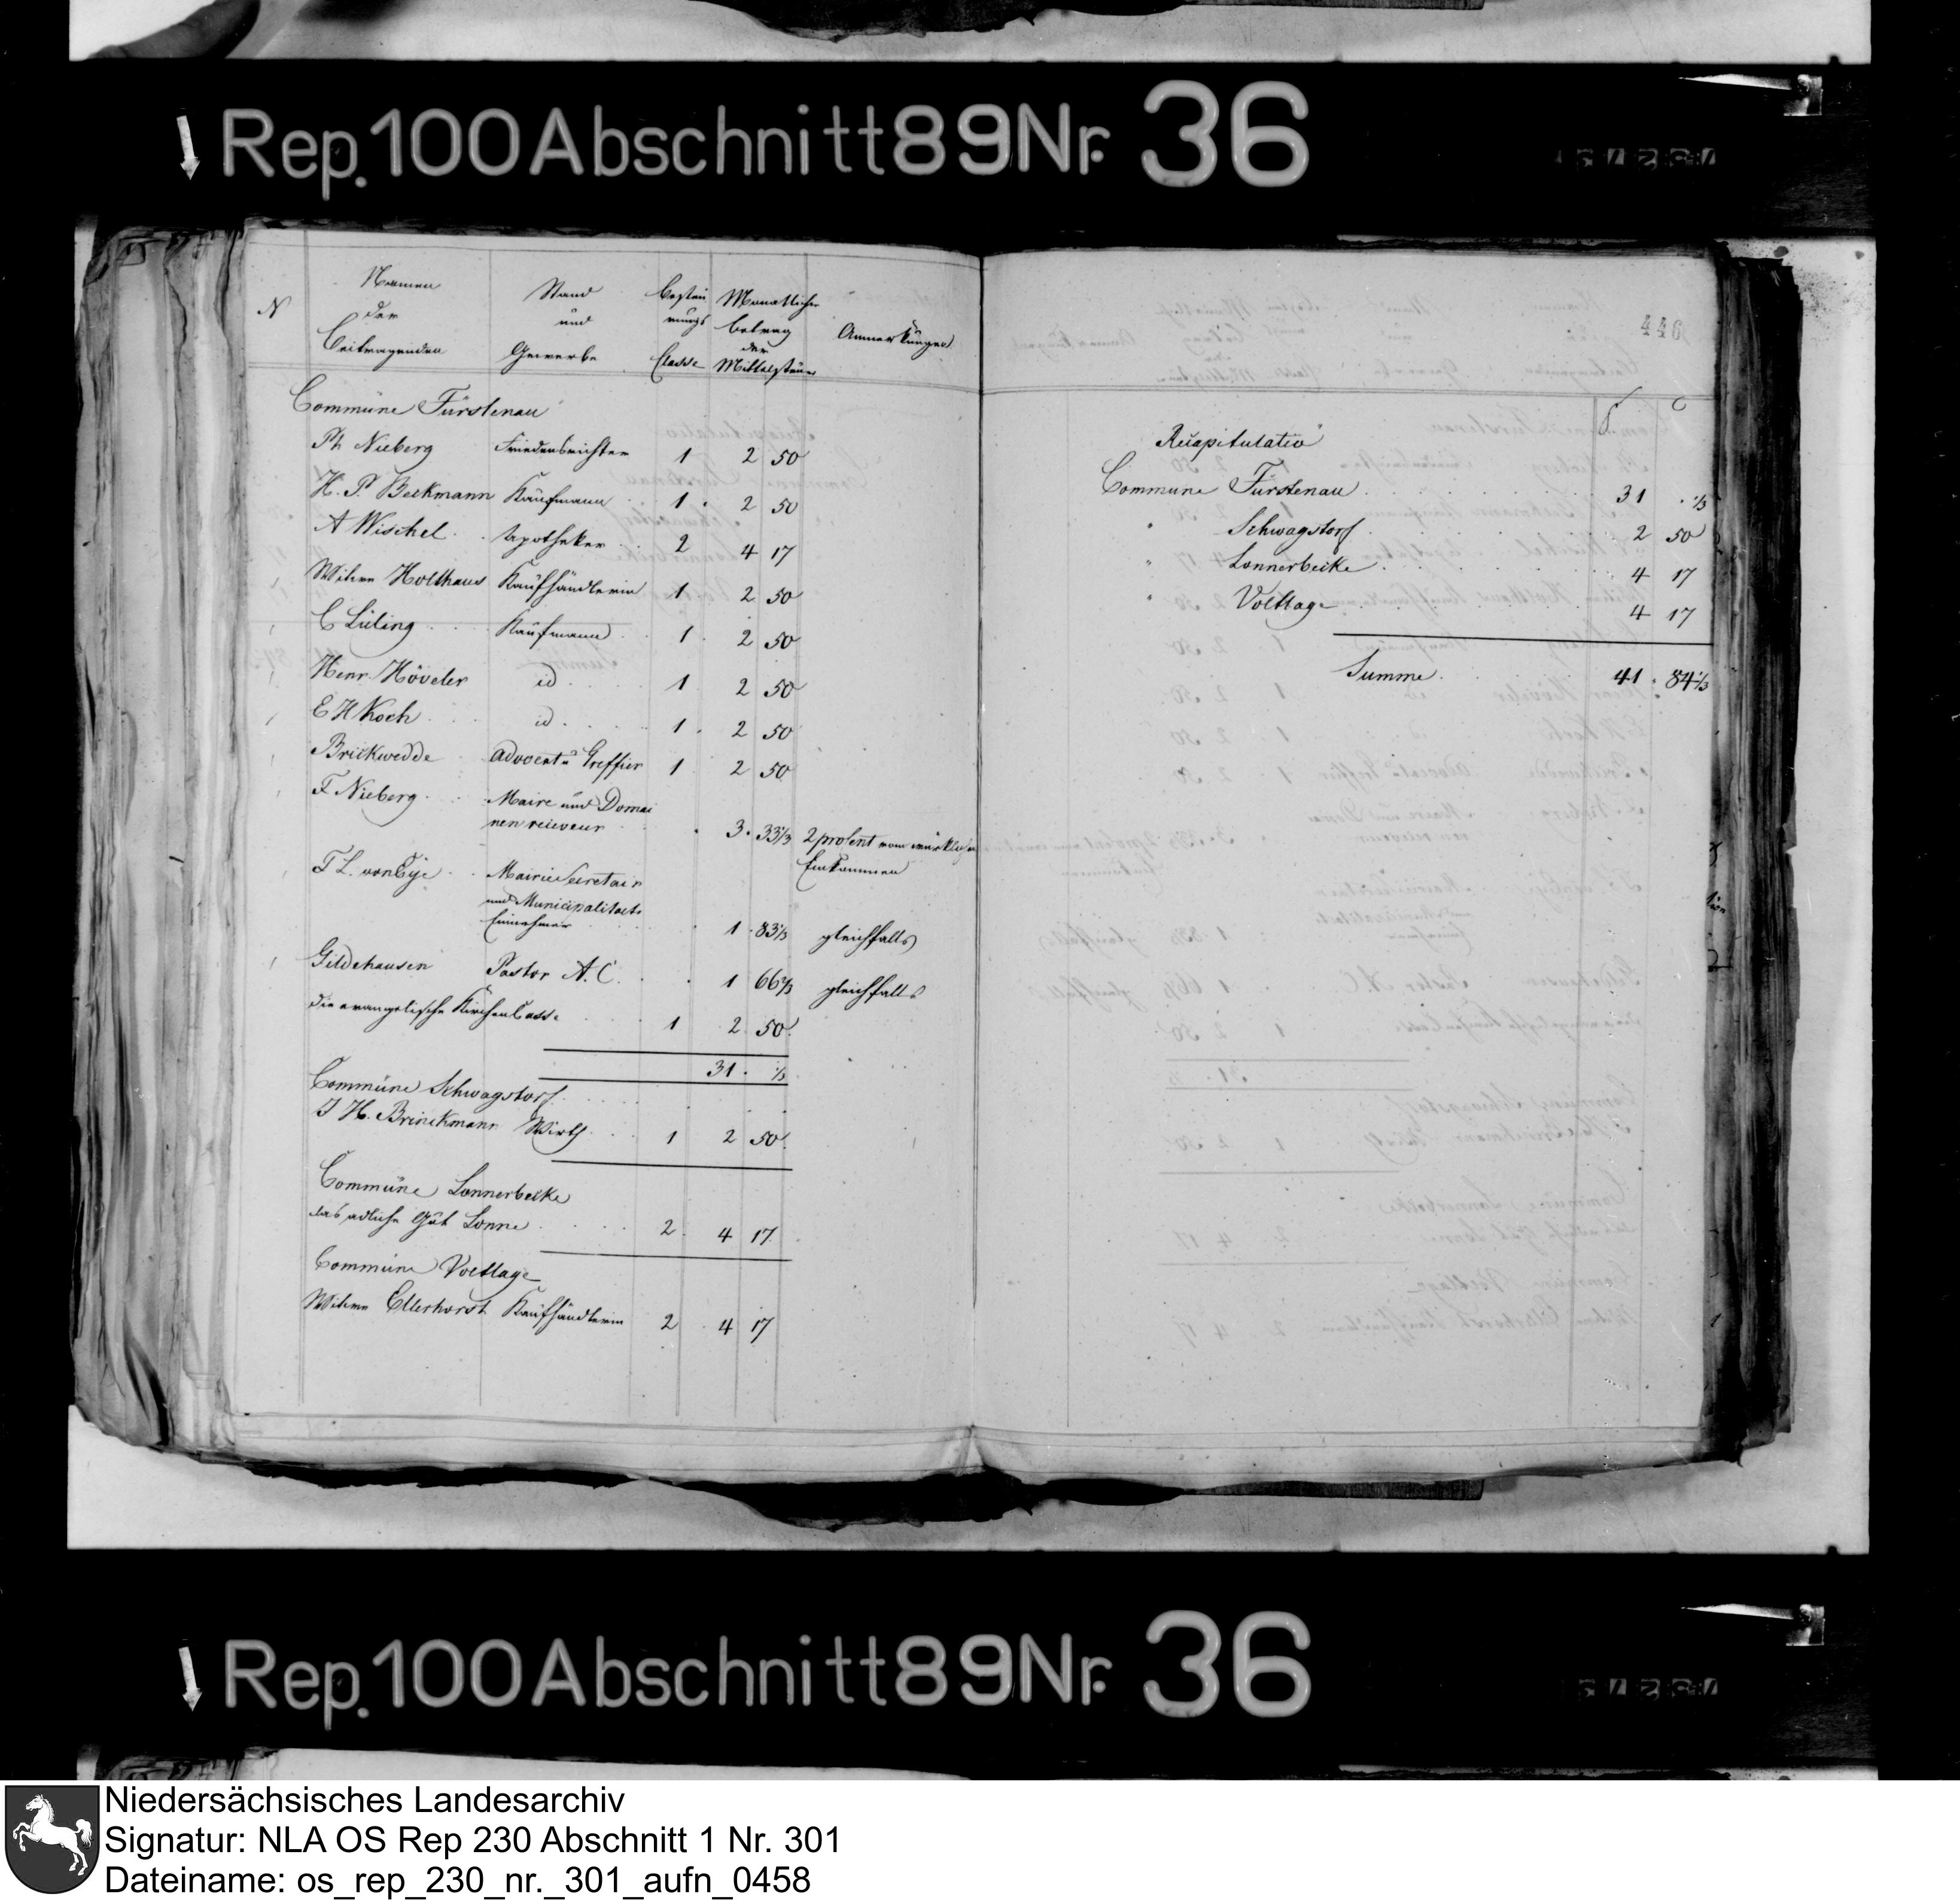 Rep. 100 Abschnitt 89 Nr. 36
N
Namen der Beitragenden
Stand und Gewerbe
Besteurungs Classe
Monatlicher Betrag der Mittelsteuer
Anmerkungen
Commüne Fürstenau
Ph Nieberg Friedensrichter 1 2 50
H. P. Beckmann Kaüfmann 1 2 50
A Wischel Apotheker 2 4 17
Witwe Holthaus Kaüfhändlerin 1 2 50
C Lüling Kaüfmann 1 2 50
Henr. Höveler id 1 2 50
E H Koch id 1 2 50
Brickwedde Advocat u Greffier 1 2 50
F Nieberg Maire und Domai
nen receveur 3 33 1/3 2 procent vom würklichen
Einkommen
F L. von Eye Mairie Secretair
und Municipalitaets
Einnehmer 1 83 1/3 gleichfalls
Gildehausen Pastor A. C. 1 66 2/3 gleichfalls
die evangelische Kirchen Casse 1 2 50
31 1/3
Commüne Schwagstorf
J H. Brinckmann Wirth 1 2 50
Commüne Lonnerbecke
das adliche Güt Lonne 2 4 17
Commüne Voltlage
Witwe Ellerhorst Kaüfhändlerin 2 4 17
446
C
Recapitulatio
Commune Fürstenau 31 1/3
" Schwagstorf 2 50
" Lonnerbecke 4 17
" Voltlage 4 17
Summe 41 84 1/3
Rep. 100 Abschnitt 89 Nr. 36
Niedersächsisches Landesarchiv
Signatur: NLA OS Rep 230 Abschnitt 1 Nr. 301
Dateiname: os_rep_230_nr._301_aufn_0458